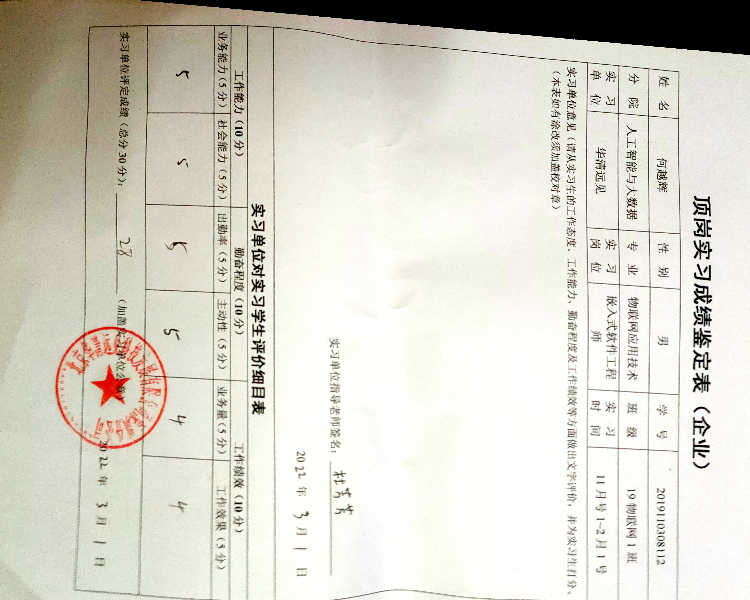 顶岗实习成绩鉴定表（企业）
姓 名 何越辉 性 别 男 学 号 2019110308112
分 院 人工智能与大数据 专 业 物联网应用技术 班 级 19物联网1班
实 习 单 位 华清远见 实 习 岗 位 嵌入式软件工程师 实 习 时 间 11月号1-2月1号
实习单位意见（请从实习生的工作态度、工作能力、勤奋程度及工作绩效等方面做出文字评价，并为实习生打分。
（本表如有涂改须加盖校对章）
实习单位指导老师签名：
2022 年 3 月 1 日
实习单位对实习学生评价细目表
工作能力（10分） 勤奋程度（10分） 工作绩效（10分）
业务能力（5分） 社会能力（5分） 出勤率（5分） 主动性（5分） 业务量（5分） 工作效果（5分）
5 5 5 5 4 4
实习单位评定成绩（总分30分）： 28 （加盖实习单位公章）
2022 年 3 月 1 日